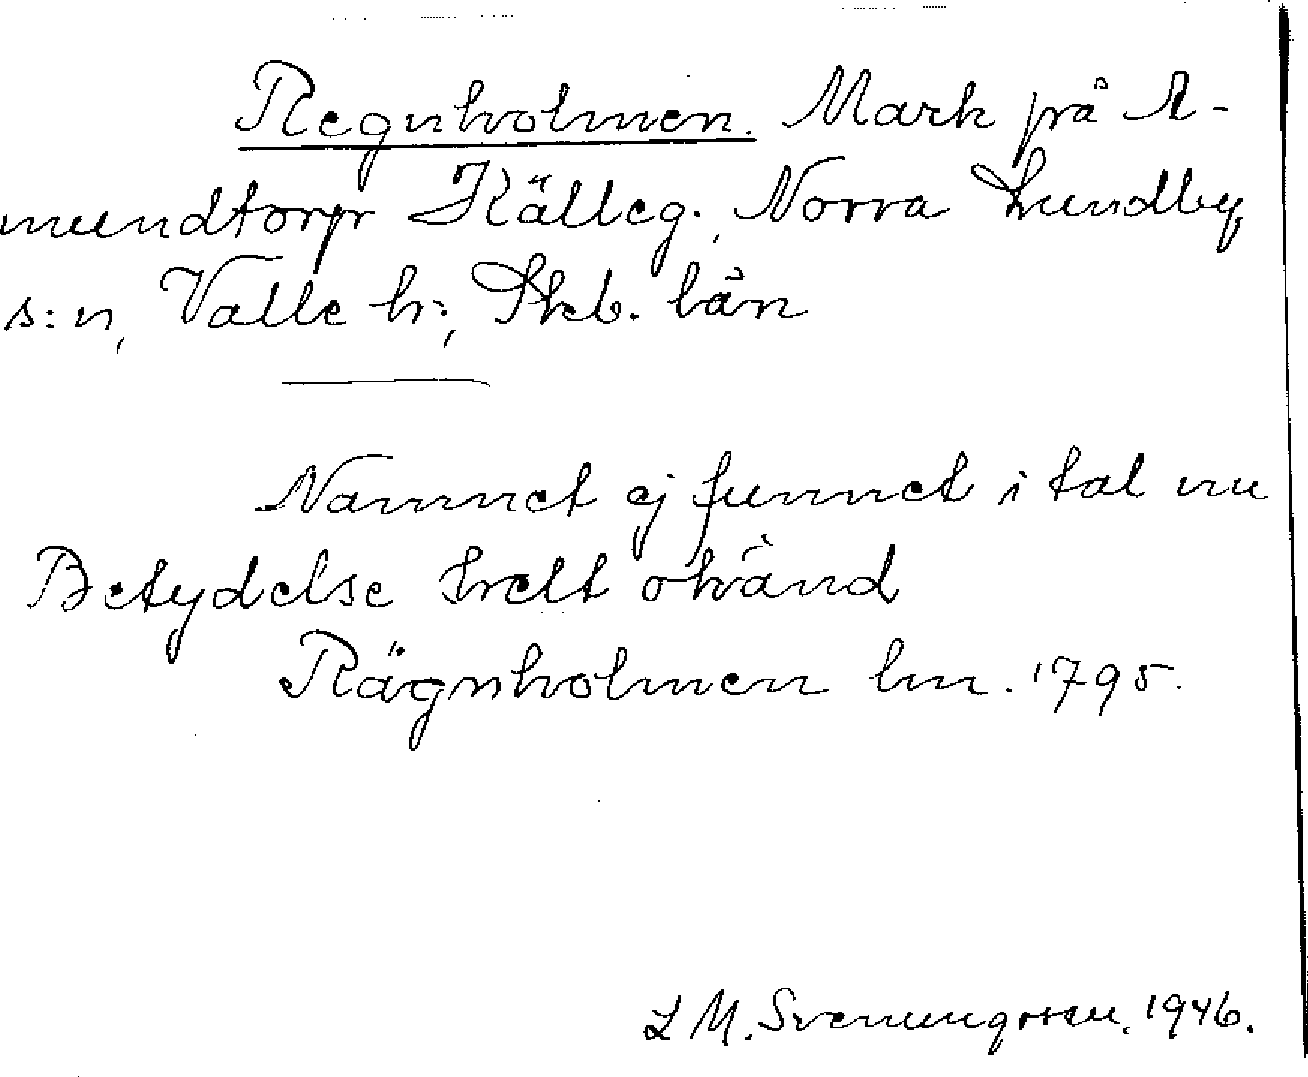 Regnholmen. Mark på A-
mundtorp Källeg., Norra Lundby
s:n, Valle h:, Skb. län
Namnet ej funnet i tal nu
Betydelse helt okänd
Rägnholmen lm. 1795.
L M. Svenungsson. 1946.